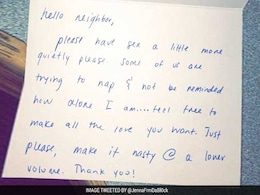 hello neighbor,
please have sex a little more
quietly please. Some of us are
trying to nap & not be reminded
how alone I am....feel free to
make all the love you want. Just
please make it nasty @ a lower
volume. Thank you!
IMAGE TWEETED BY @JennaFrmDaBlock